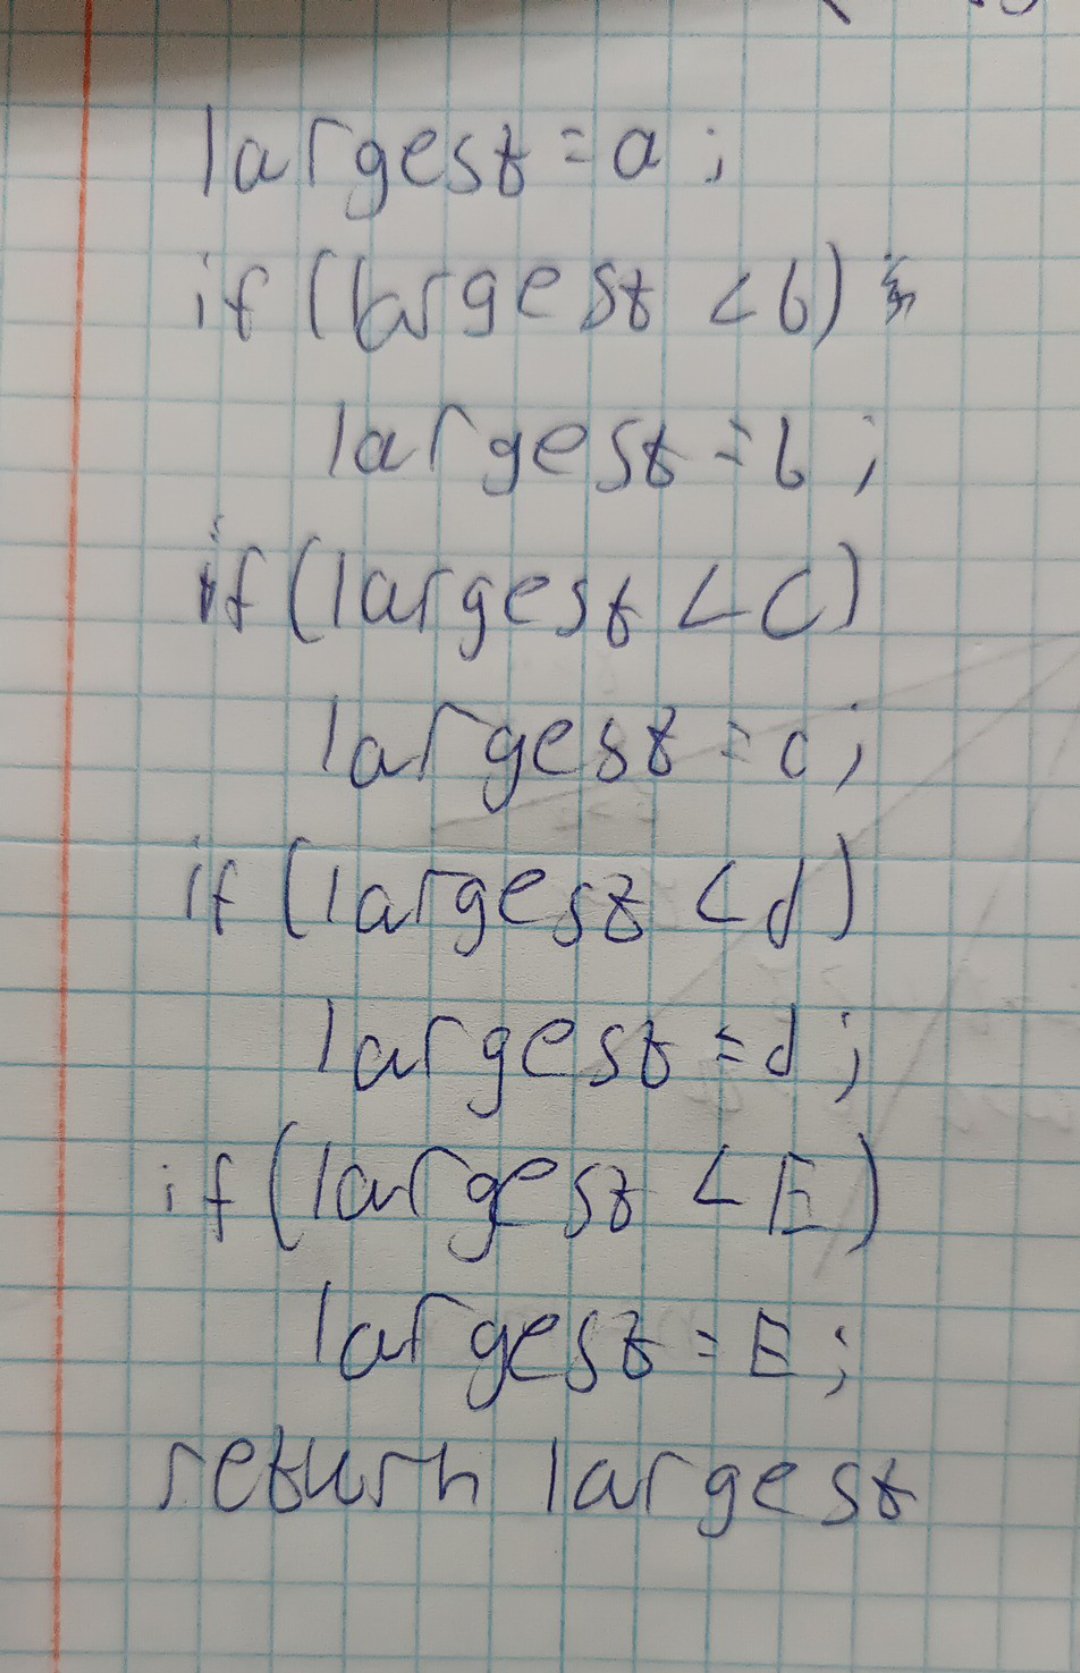 largest = a ;
if (largest < b)
largest = b ;
if (largest < C)
largest = c ;
if (largest < d)
largest = d ;
if (largest < E)
largest = E ;
return largest